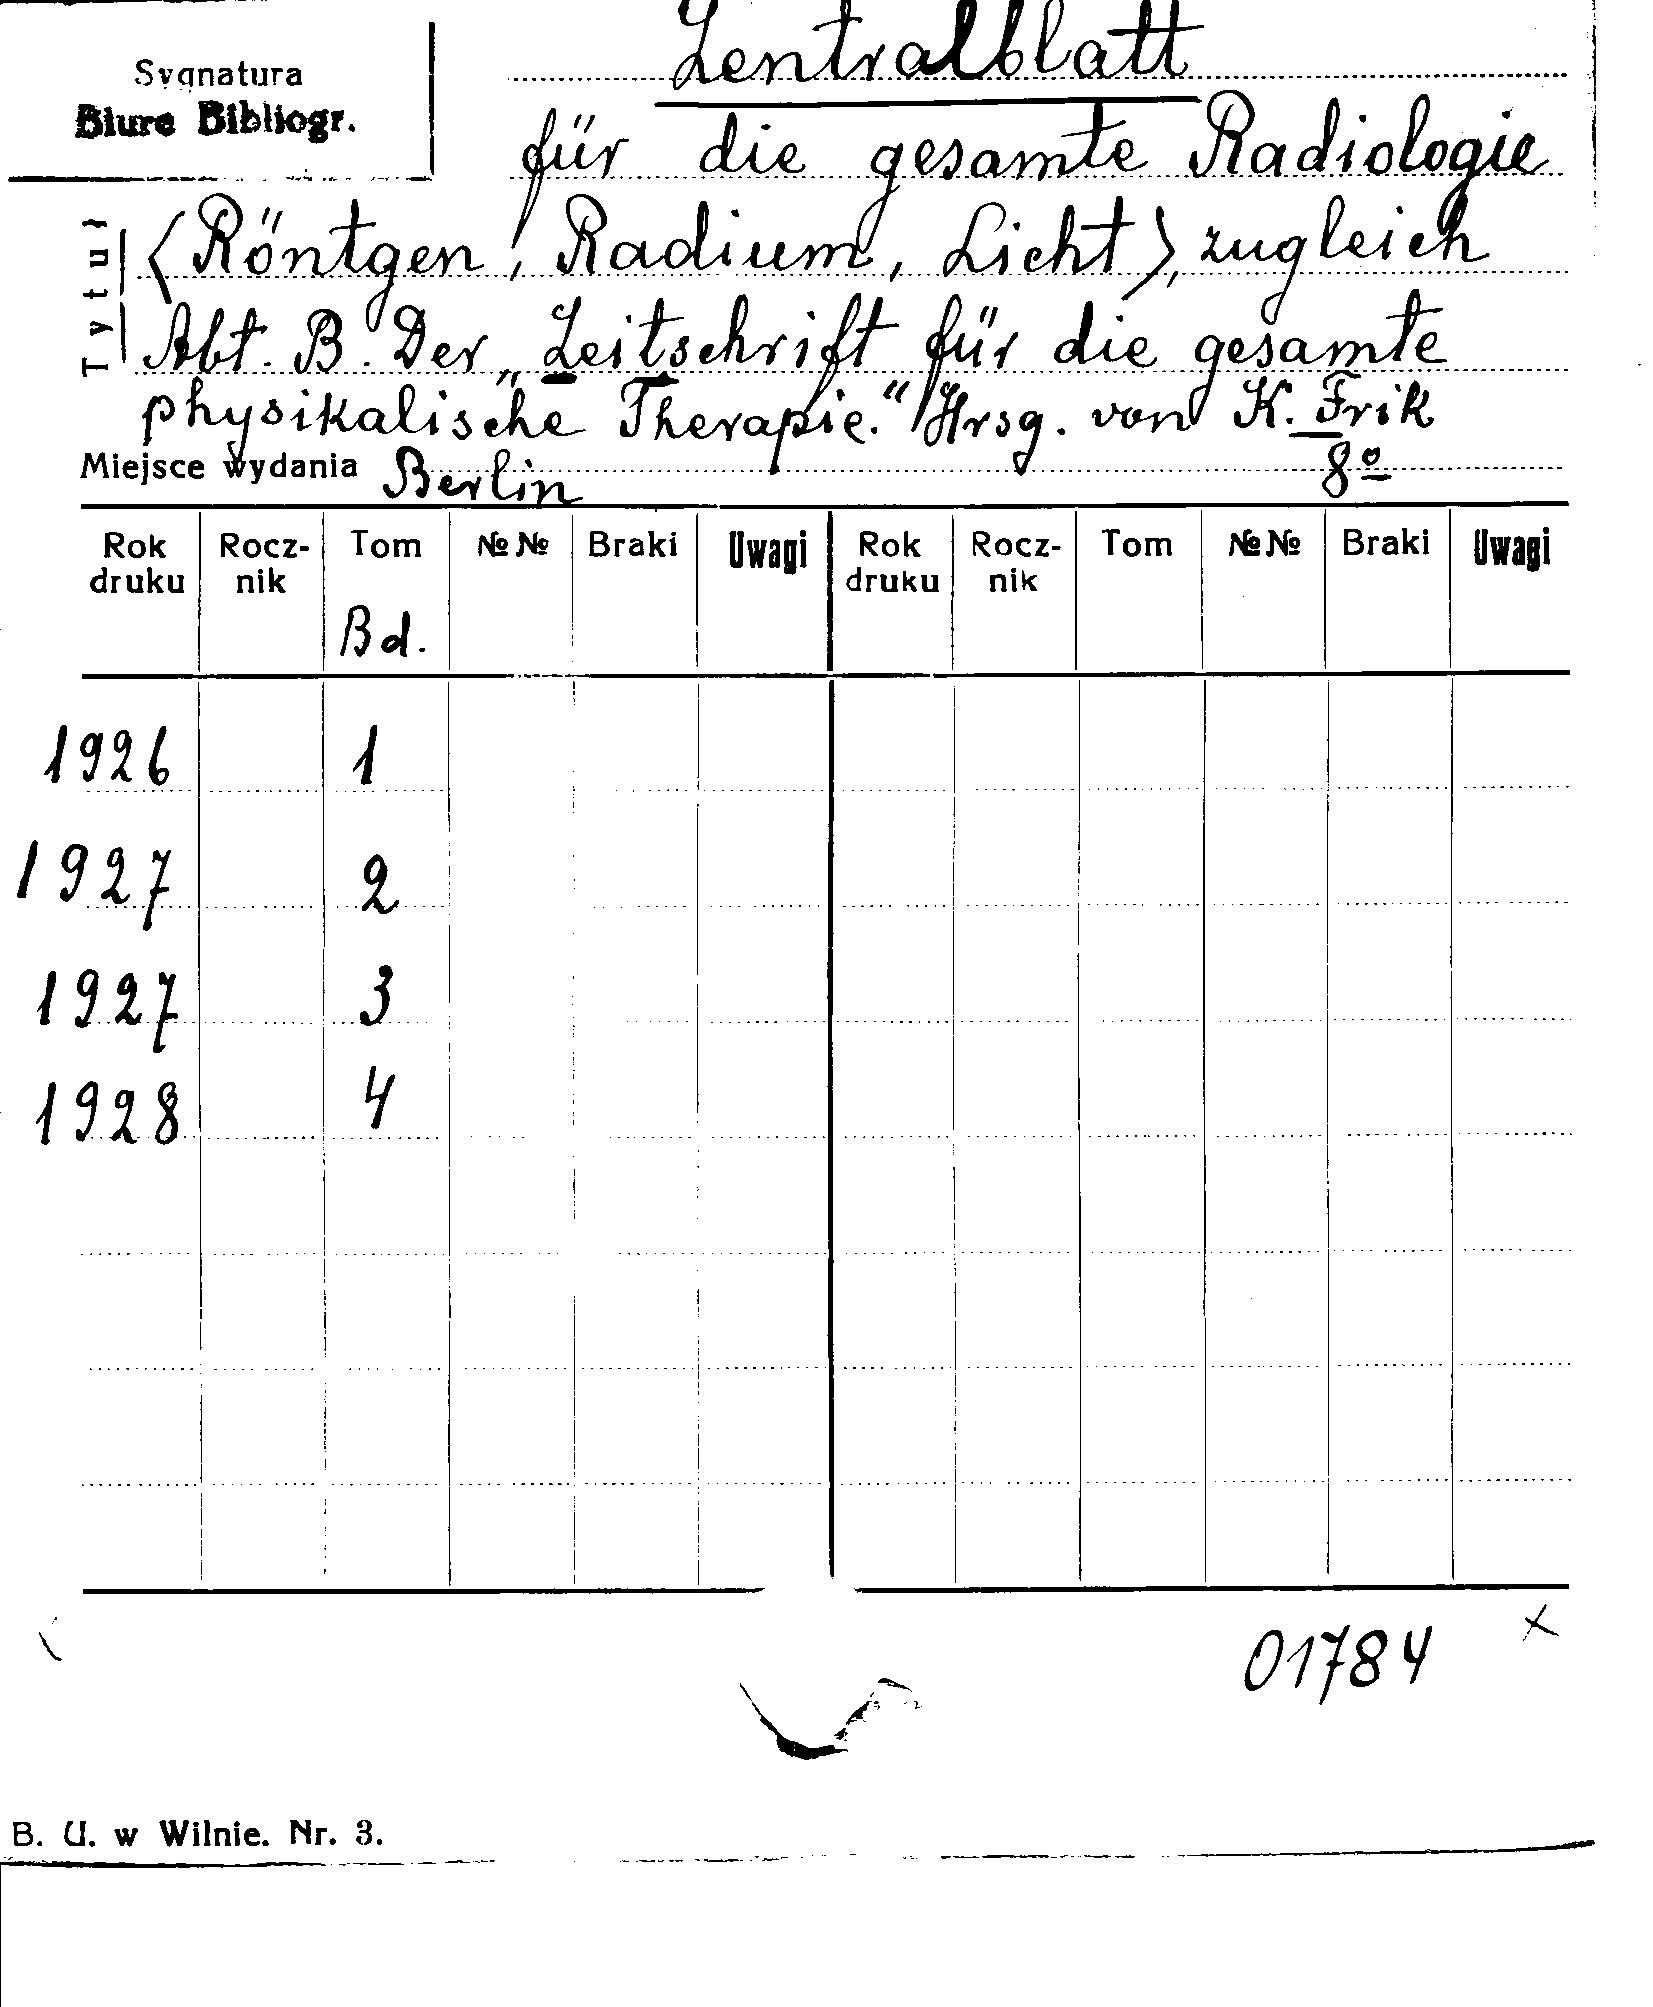 Zentralblatt
Sygnatura
Biuro Bibliogr.
für die gesamte Radiologie
Tytuł
〈Röntgen, Radium, Licht〉, zugleich
Abt. B. Der „Zeitschrift für die gesamte
physikalische Therapie.“ Hrsg. von K. Frik
Miejsce wydania Berlin 8º
Rok druku Rocz-nik Tom №№ Braki Uwagi Rok druku Rocz-nik Tom №№ Braki Uwagi
Bd.
1926 1
1927 2
1927 3
1928 4
01784 x
B. U. w Wilnie. Nr. 3.